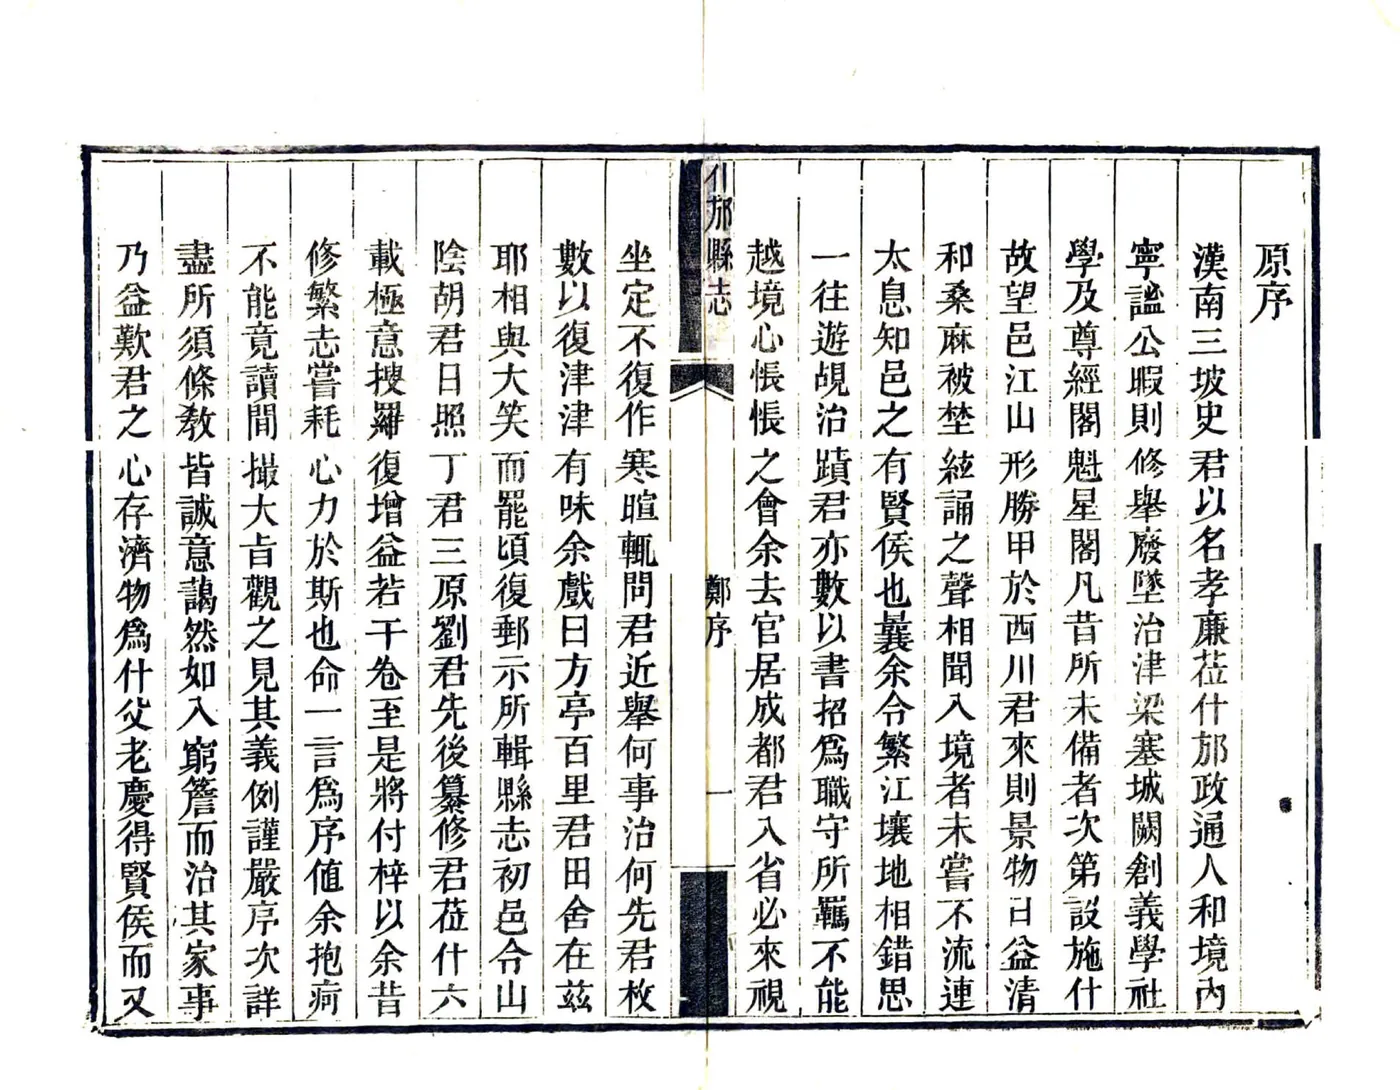 原序
漢南三坡史君以名孝廉莅什邡政通人和境內
寧謐公暇則修舉廢墜治津梁塞城闕創義學社
學及尊經閣魁星閣凡昔所未備者次第設施什
故望邑江山形勝甲於西川君來則景物日益清
和桑麻被埜絃誦之聲相聞入境者未嘗不流連
太息知邑之有賢侯也曩余令繁江壤地相錯思
一往遊覘治蹟君亦數以書招為職守所羈不能
越境心悵悵之會余去官居成都君入省必來視
什邡縣志
鄭序
一
坐定不復作寒暄輒問君近舉何事治何先君枚
數以復津津有味余戲曰方亭百里君田舍在茲
耶相與大笑而罷頃復郵示所輯縣志初邑令山
陰胡君日照丁君三原劉君先後纂修君莅什六
載極意捜羅復增益若干卷至是將付梓以余昔
修繁志嘗耗心力於斯也命一言為序値余抱疴
不能竟讀間撮大㫖觀之見其義例謹嚴序次詳
盡所須條教皆誠意藹然如入窮簷而治其家事
乃益歎君之心存濟物為什父老慶得賢侯而又